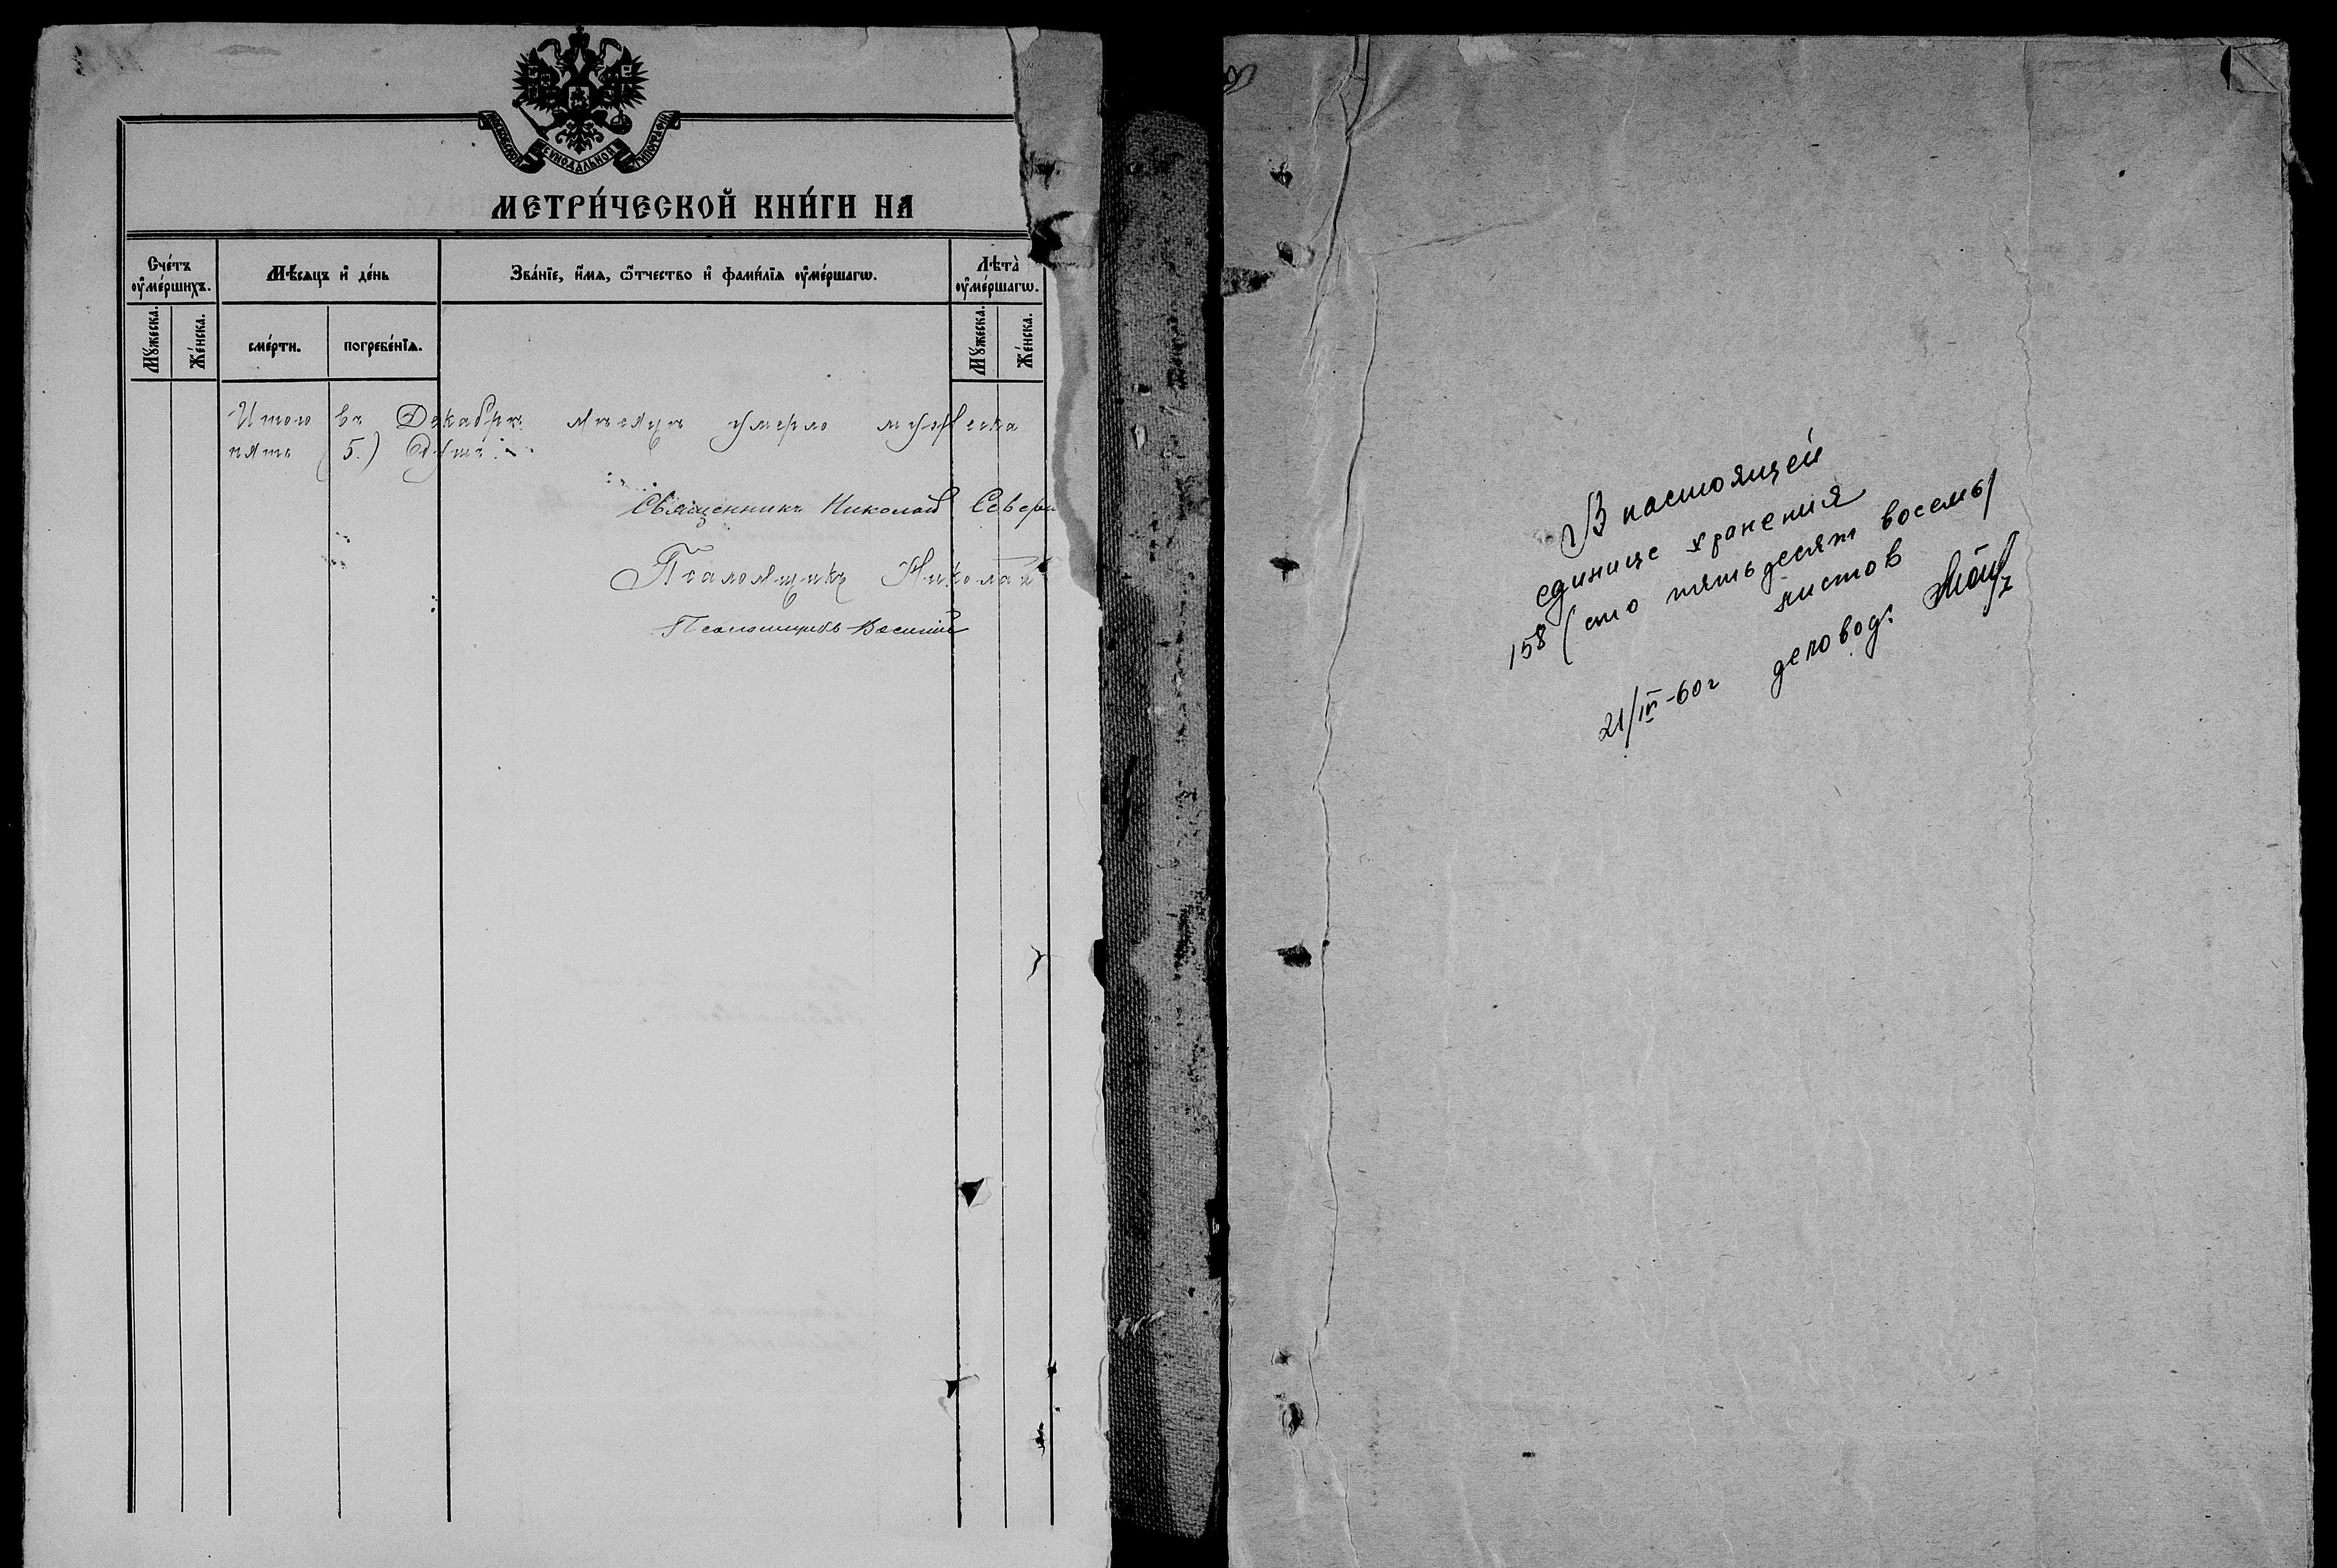 МОСКОВСКОЙ СѴНОДАЛЬНОЙ ТИПОГРАФІИ
МЕТРИ́ЧЕСКОЙ КНИ́ГИ НА
Сче́тъ ᲂу҆ме́ршихъ.
Мѣ́сяцъ и҆ де́нь
Зва́нїе, и҆́мя, ѻ҆́тчество и҆ фами́лїя ᲂу҆ме́ршагѡ.
Лѣта̀ ᲂу҆ме́ршагѡ.
Мꙋ́жеска.
Же́нска.
сме́рти.
погребе́нїя.
Мꙋ́жеска.
Же́нска.
Итого въ Декабрѣ мѣсяцѣ умерло мужеска
пять (5.) душъ.
Священникъ Николай Севери
Псаломщикъ Николай
Псаломщикъ Василій
В настоящей
единице хранения
158 (сто пятьдесят восемь)
листов
21/IV-60г деловод.